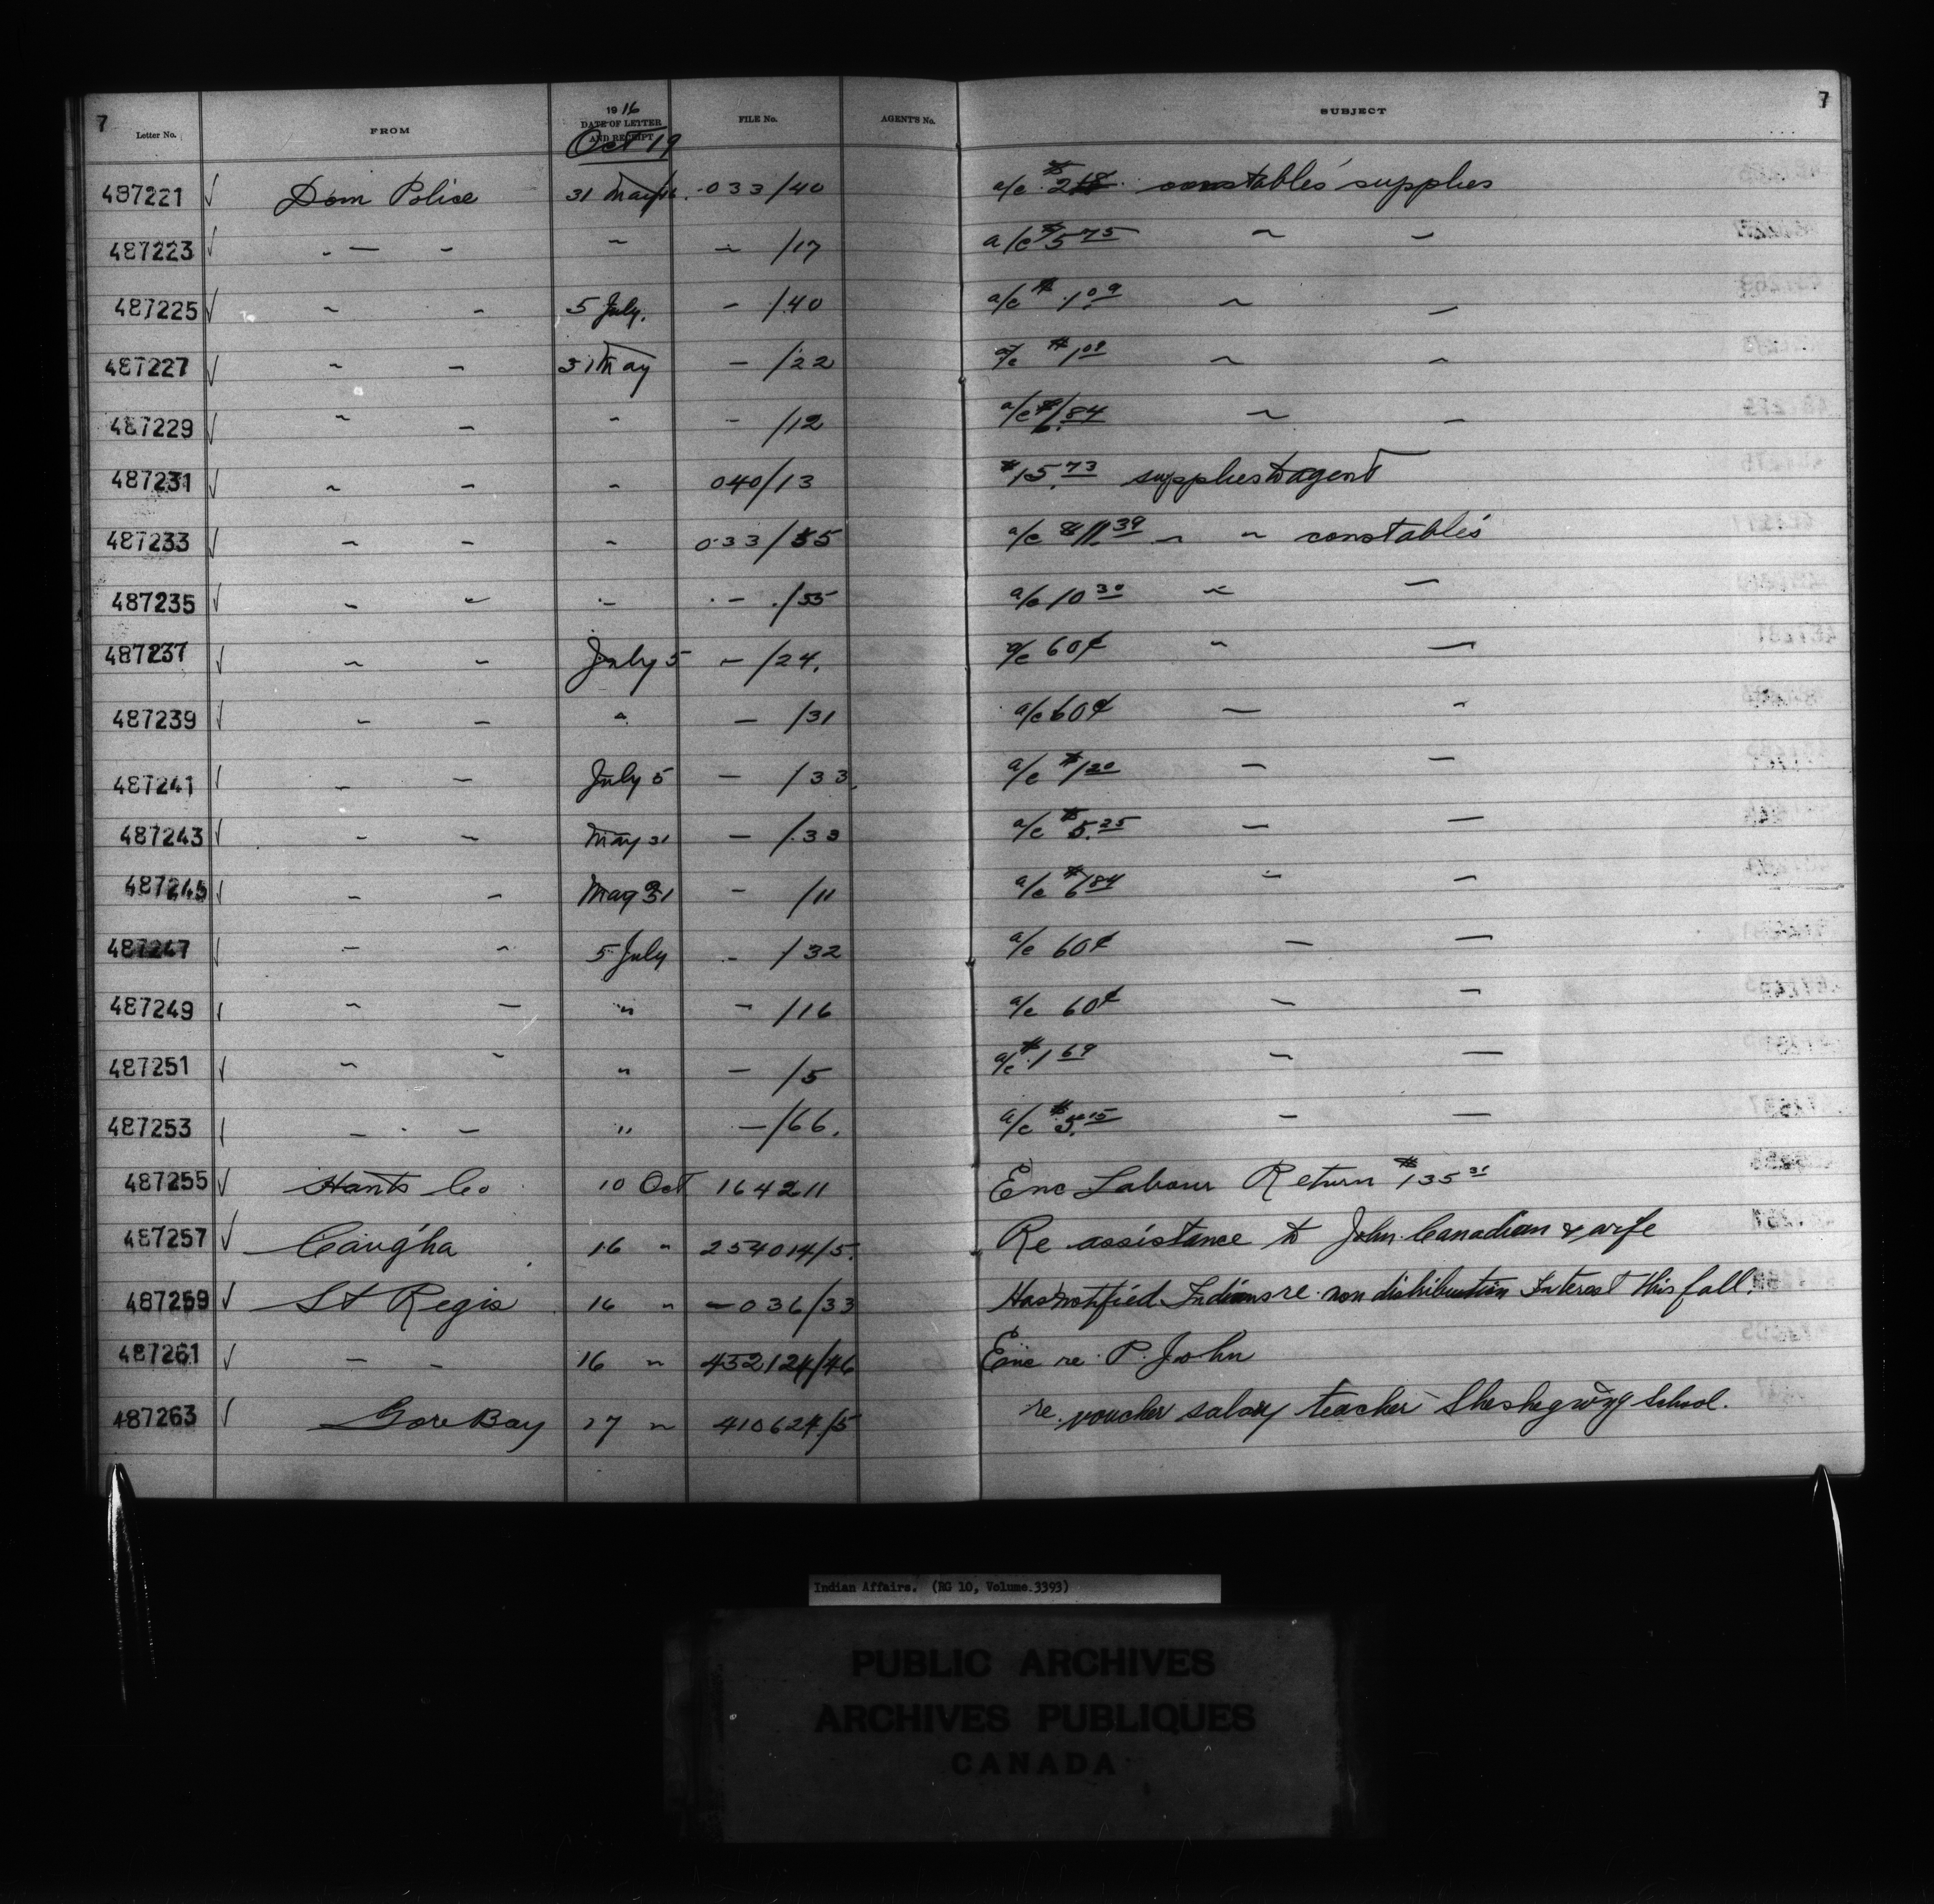 7 Letter No. FROM 1916 DATE OF LETTER AND RECEIPT FILE No. AGENT'S No. SUBJECT 7
Oct 19
487221 √ Dom Police 31 May/16. 033/40 a/c $2 18 constables' supplies
487223 √ — - ~ ~ /17 a/c $5 75 ~ —
487225 √ ~ - 5 July. - /40 a/c $1.09 ~ —
487227 √ ~ - 31 May - /22 a/c $1 09 ~ ~
487229 √ ~ - - - /12 a/c $6.84 ~ -
487231 √ ~ - - 040/13 $15.73 supplies to agent
487233 √ ~ - - 033/55 a/c $11.39 ~ ~ constables'
487235 √ ~ ~ - - /55 a/c 10 30 ~ —
487237 √ ~ ~ July 5 ~ /24. a/c 60¢ ~ —
487239 √ - - " — /31 a/c 60¢ — -
487241 √ - - July 5 — /33 a/c $1 20 — —
487243 √ - - May 31 — /33 a/c $5.25 — —
487245 √ - - May 31 - /11 a/c $6 84 - —
487247 √ - - 5 July - /32 a/c 60¢ — —
487249 √ ~ — " - /16 a/c 60¢ — —
487251 √ ~ - " — /5 a/c $1 69 — —
487253 √ - - " —/66. a/c $5.15 — —
487255 √ Hants Co 10 Oct 164211 Enc Labour Return $135 31
487257 √ Caugh'a 16 " 254014/5. Re assistance to John Canadian & wife
487259 √ St Regis 16 " —036/33 Has notified Indians re non distribution Interest this fall.
487261 √ — - 16 " 452124/46 Enc re P. John
487263 √ Gore Bay 17 " 410624/5 re voucher salary teacher Sheshegwing School.
Indian Affairs. (RG 10, Volume 3393)
PUBLIC ARCHIVES
ARCHIVES PUBLIQUES
CANADA